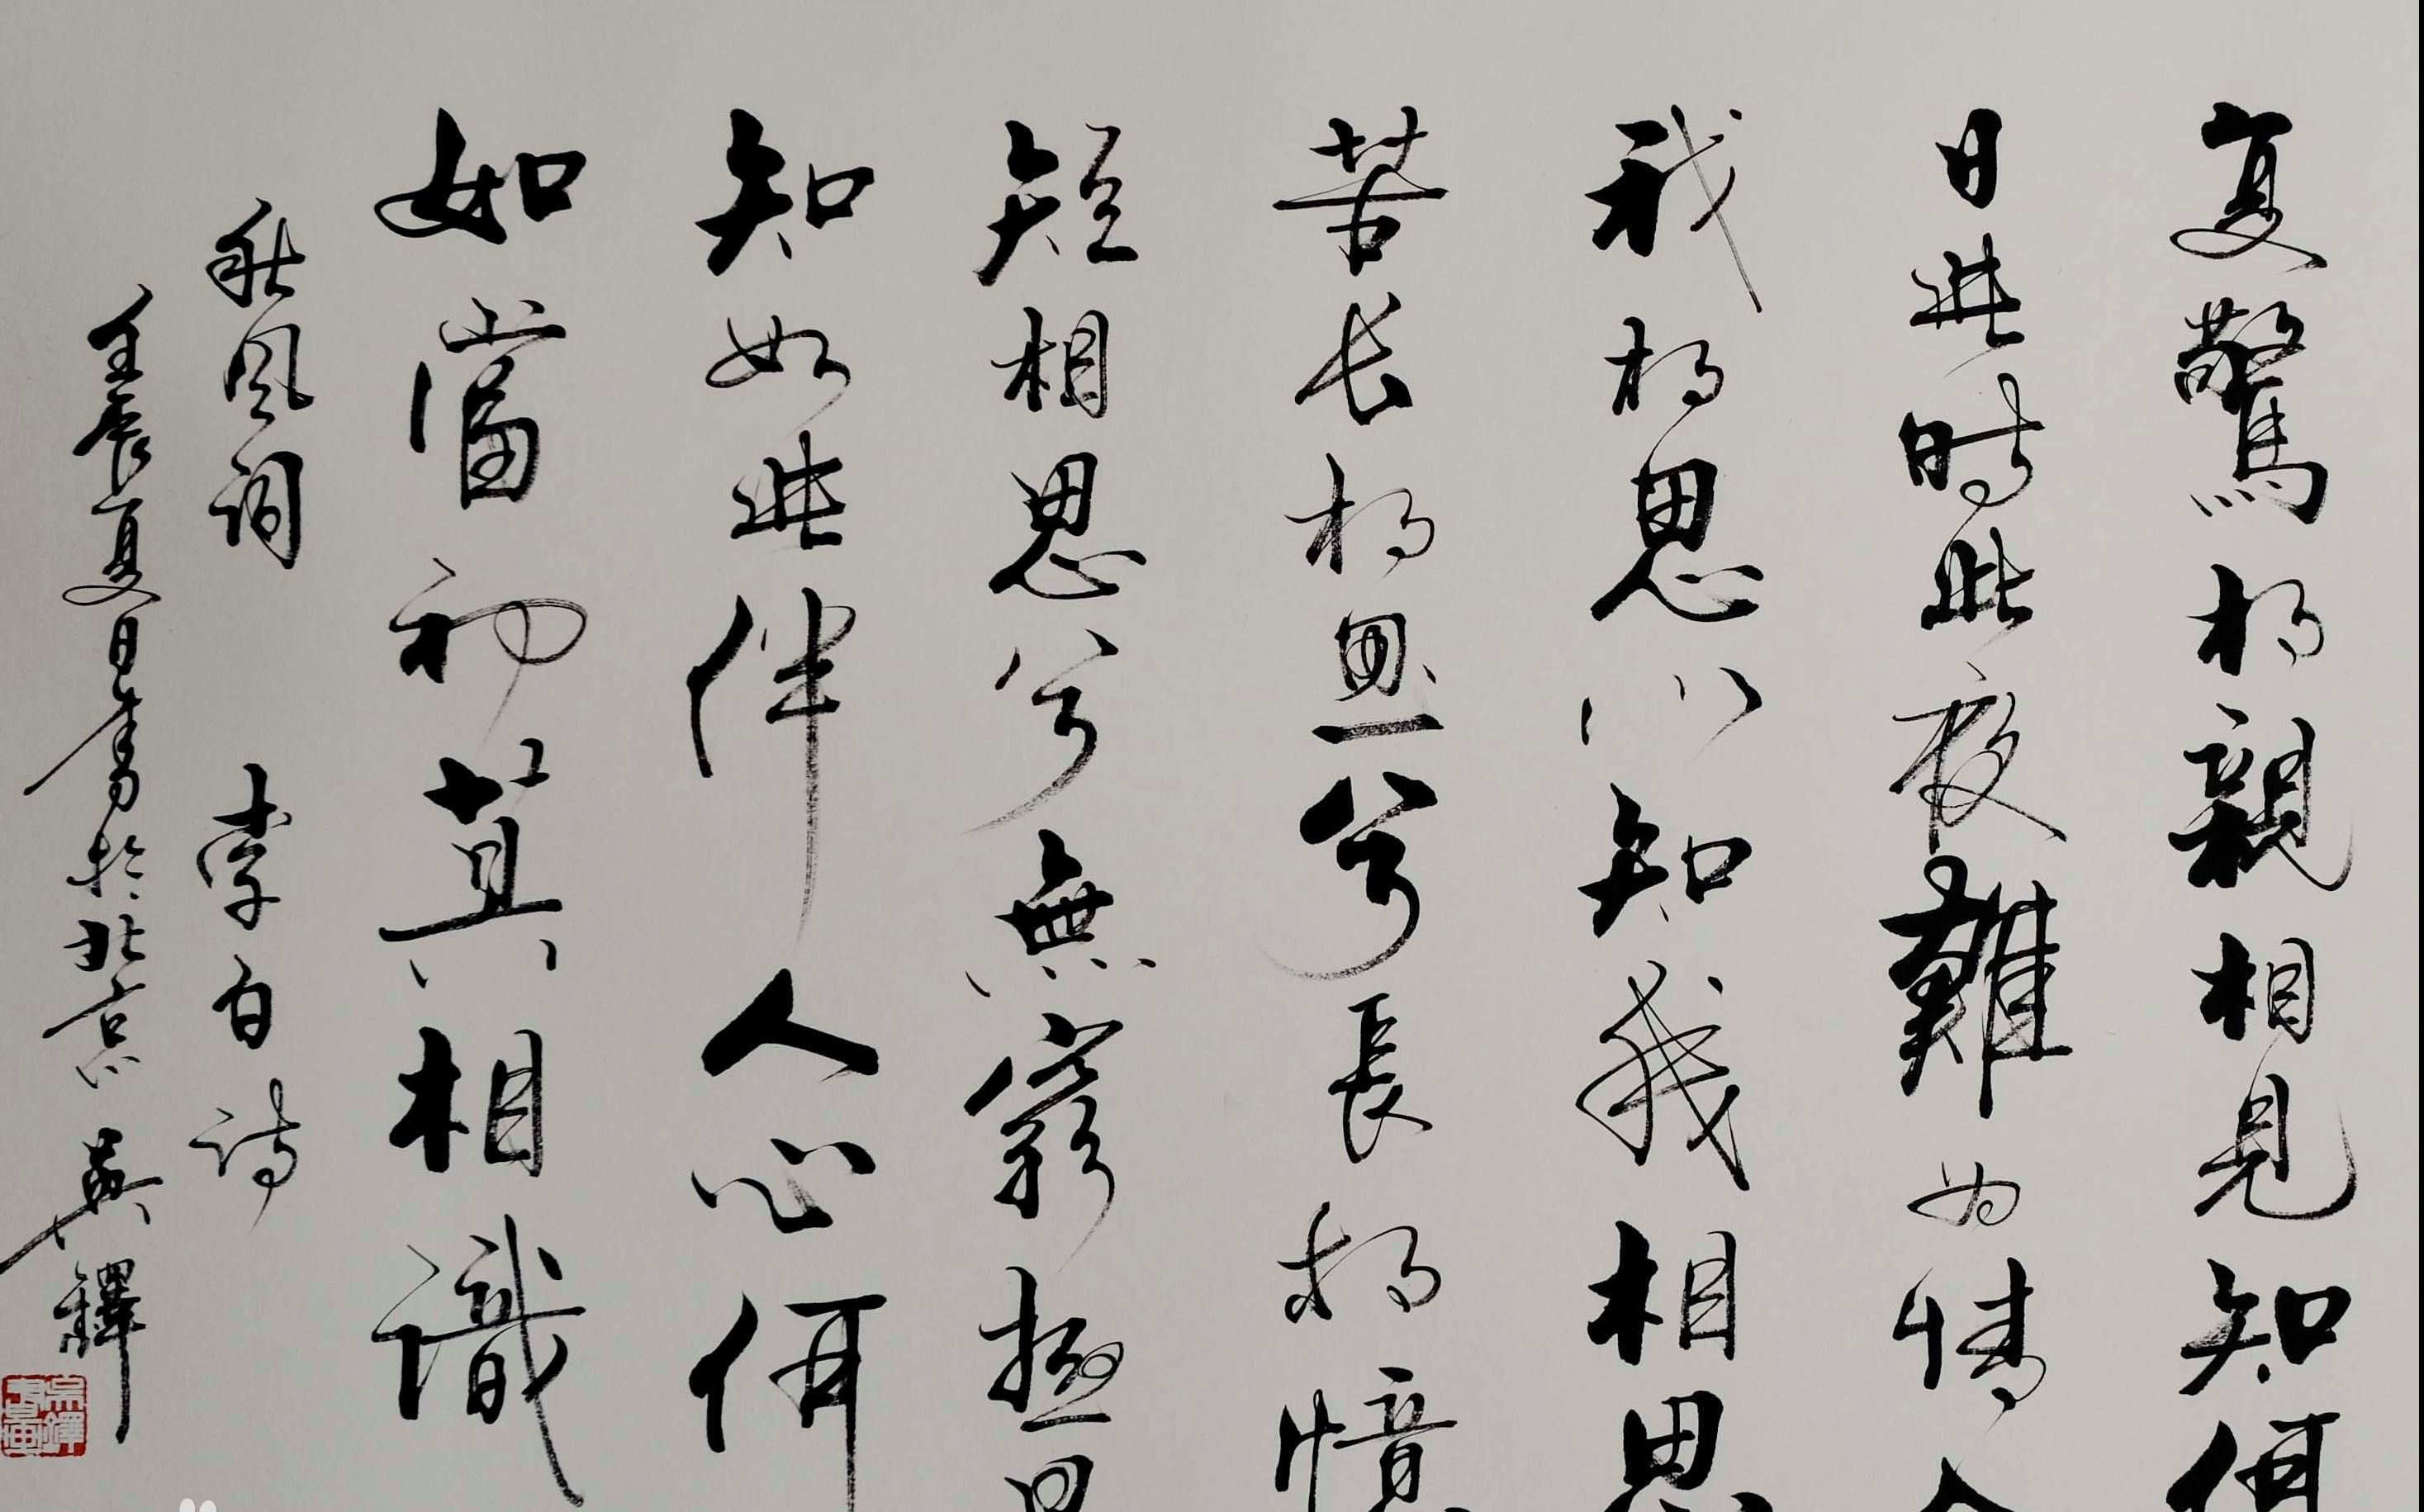 复驚相親相見知何
日此時此夜難為情
我相思以知我相思
苦长相思兮長相憶
短相思兮無窮極
知如此伴人心何
如當初莫相識
秋风词 李白詩
壬辰夏日書於北京 吴鐸